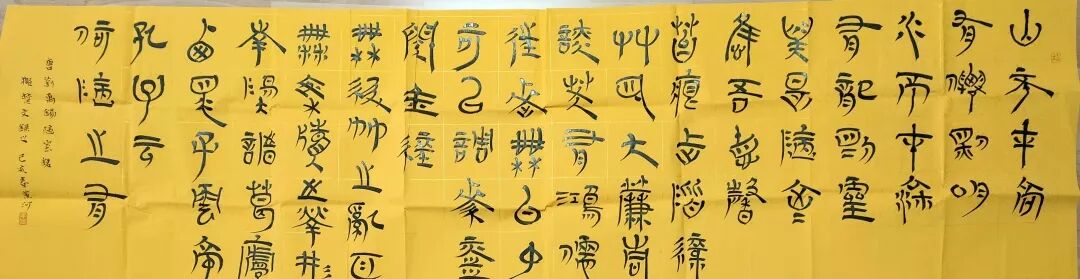 山不在高
有僊則名
水不在深
有龍則靈
斯是陋室
惟吾德馨
苔痕上階綠
草色入簾青
談笑有鴻儒
往來無白丁
可以調素琴
閱金經
無絲竹之亂耳
無案牘之勞形
南陽諸葛廬
西蜀子雲亭
孔子云
何陋之有
唐劉禹錫陋室銘
己亥春